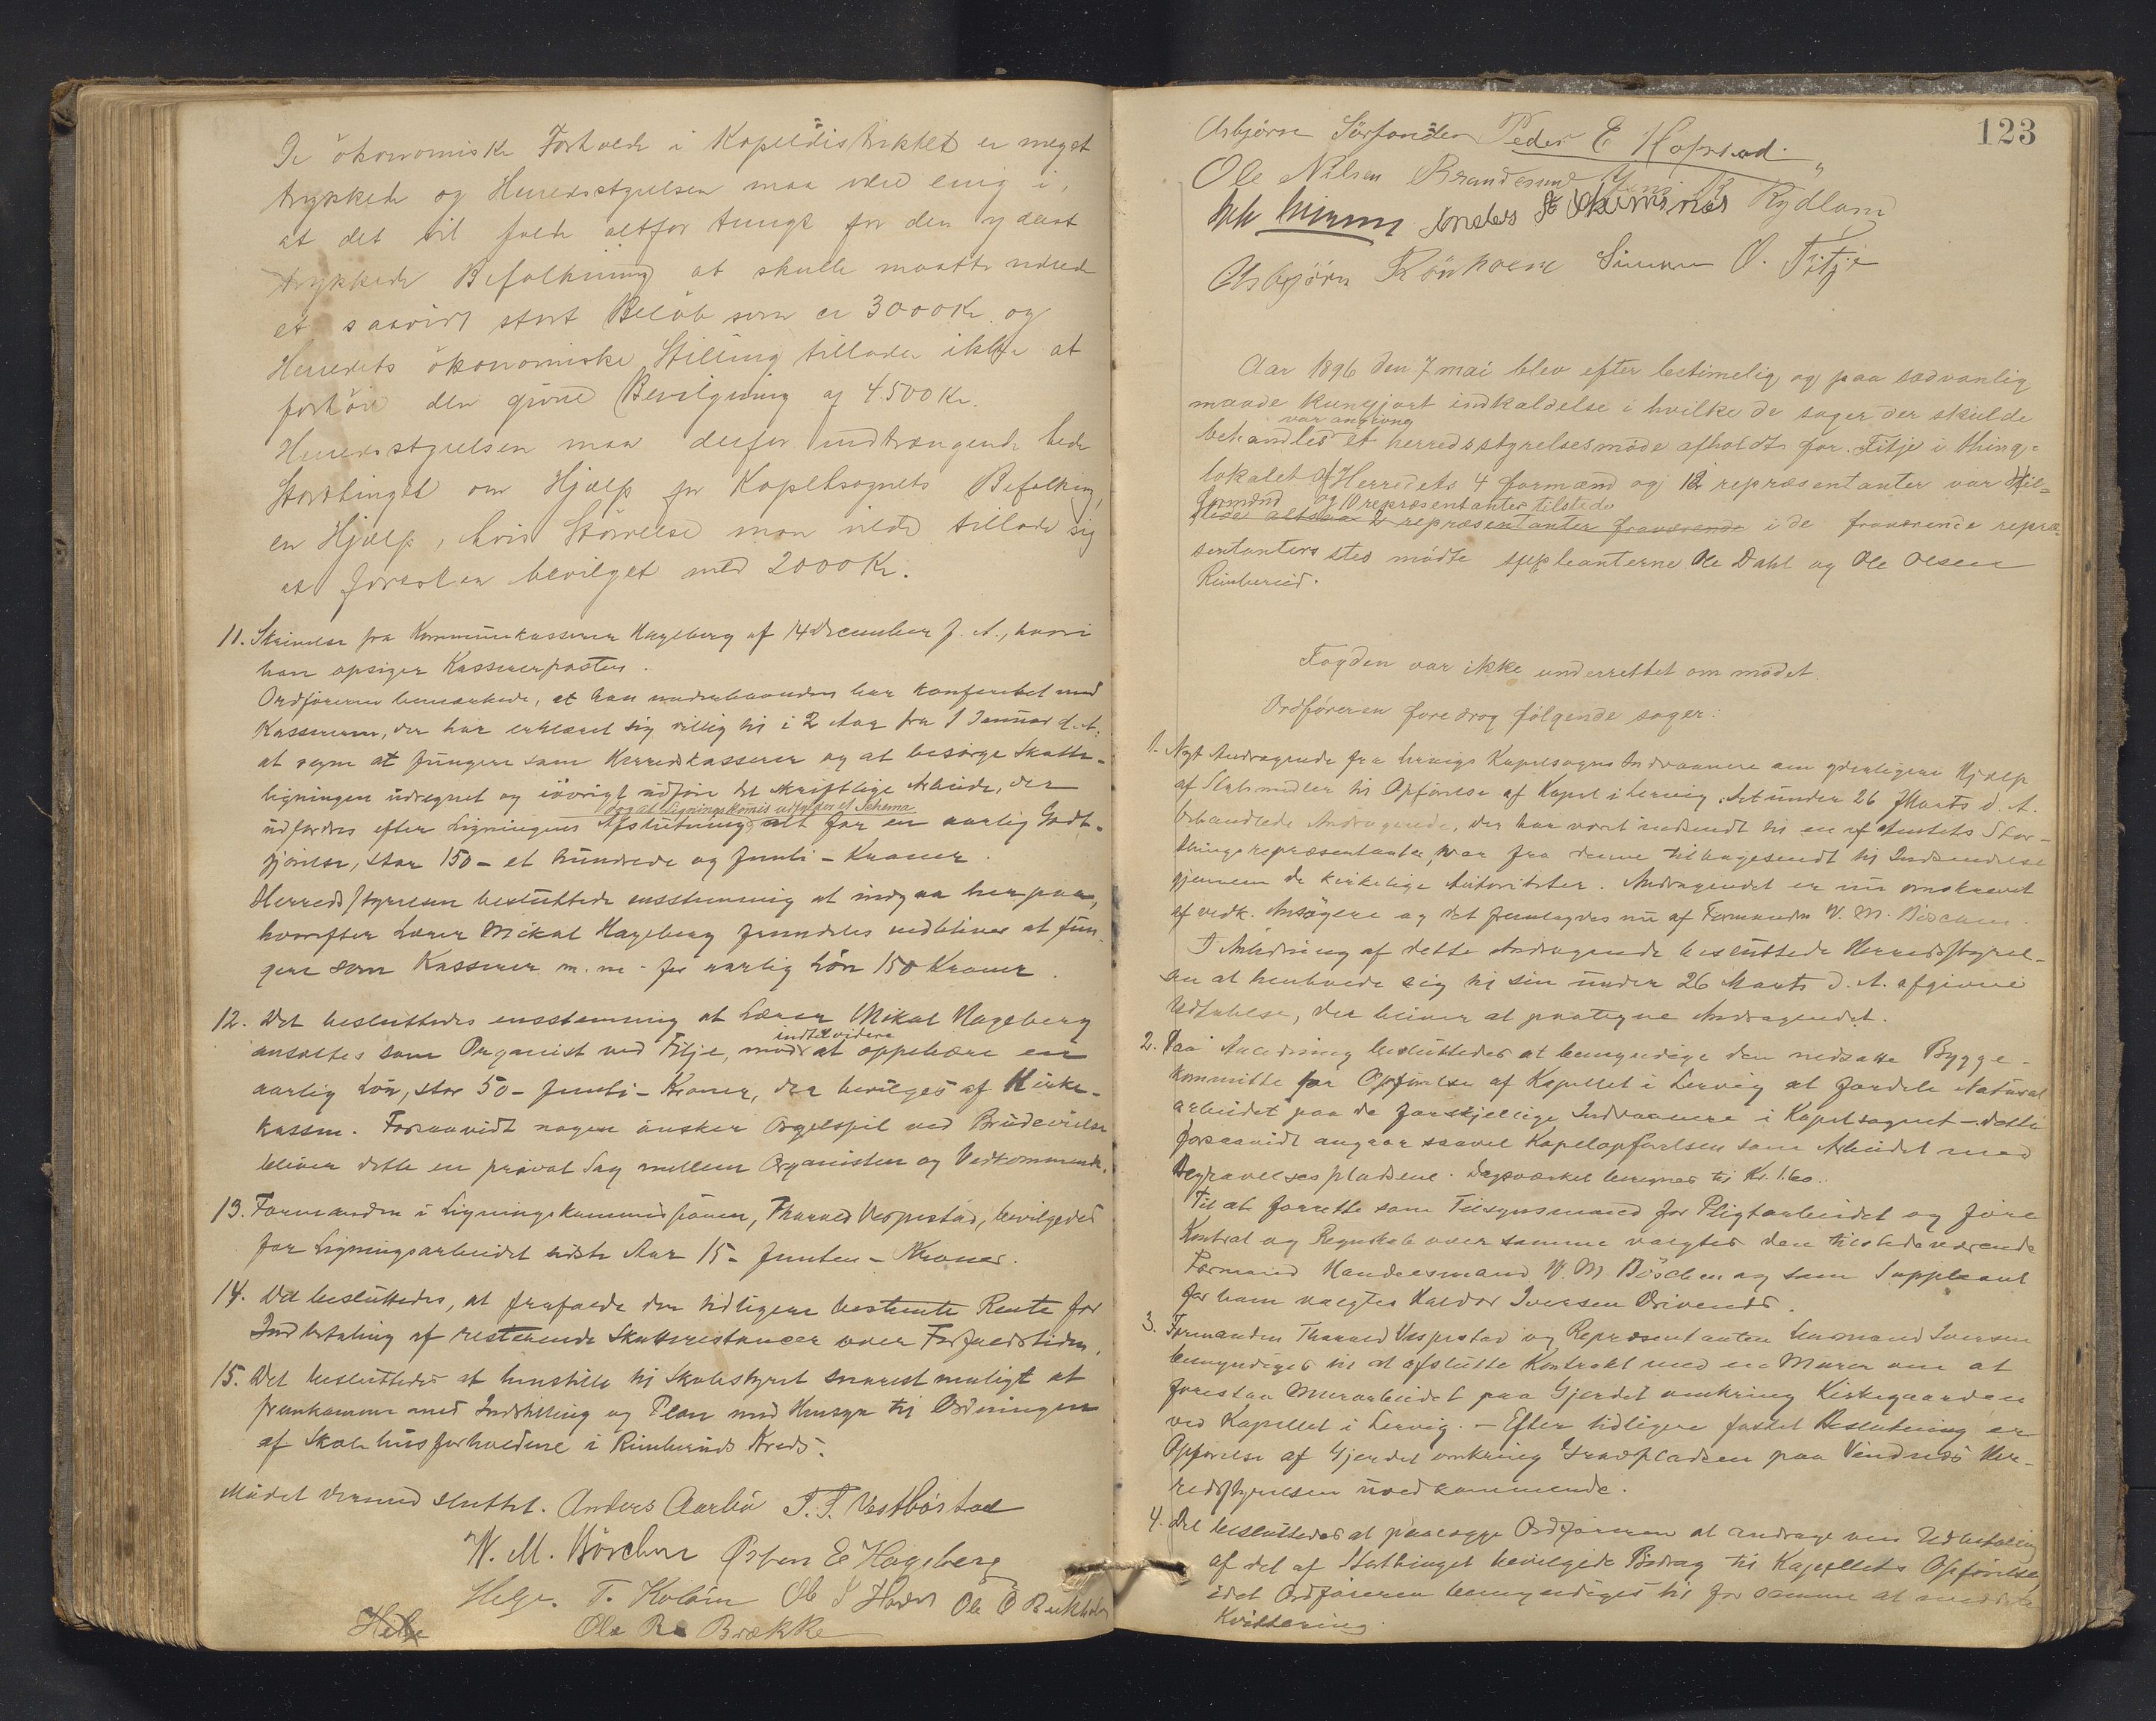 De ökonomiske Forholde i Kapeldistriktet er meget
trykkede og Herredsstyrelsen maa være enig i,
at det vil falde altfor tungt for den
trykkede Befolkning at skulle maatte udrede
et saavidt stort Beløb som er 3000 Kr. og
Herredets ökonomiske Stilling tillader ikke at
forhöie den givne Bevilgning af 4500 Kr.
Herredsstyrelsen maa derfor indtrængende bede
Storthinget om Hjælp for Kapelsognets Befolkning,
en Hjælp, hvis Størrelse man vilde tillade sig
at foreslaa bevilget med 2000 Kr.
11. Skrivelse fra Kommunekasserer Hageberg af 14 December f. A., hvori
han opsiger Kassererposten.
Ordføreren bemærkede, at han underhaanden har konfereret med
Kassereren, der har erklæret sig villig til i 2 Aar fra 1 Januar d. A.
at fungere som Herredskasserer og at besørge Skatte-
ligningen udregnet og iövrigt udføre det skriftlige Arbeide, der
dog at Ligningskomis udfylder et Schema
udfordres efter Ligningens Afslutning, alt for en aarlig Godt-
gjörelse, stor 150 - et hundrede og femti - Kroner.
Herredsstyrelsen besluttede enstemmig at indgaa herpaa,
hvorefter Lærer Mikal Hageberg fremdeles vedbliver at fun-
gere som Kasserer m. m. for aarlig Lön 150 Kroner.
12. Det besluttedes enstemmig at Lærer Mikal Hageberg
indtil videre
ansættes som Organist ved Fitje, mod at oppebære en
aarlig Lön, stor 50 - femti - Kroner, der bevilges af Kirke-
kassen. Forsaavidt nogen önsker Orgelspil ved Brudevielse
bliver dette en privat Sag mellem Organisten og Vedkommende.
13. Formanden i Ligningskommissionen, Tharald Vespestad, bevilgedes
for Ligningsarbeidet sidste Aar 15 - femten - Kroner.
14. Det besluttedes, at frafalde den tidligere bestemte Rente for
Indbetaling af resterende Skatterestancer over Forfaldstiden.
15. Det besluttedes at henstille til Skolestyret snarest muligt at
fremkomme med Indstilling og Plan med Hensyn til Ordningen
af Skolehusforholdene i Rimbereids Kreds.
Mödet dermed sluttet. Anders Aarbö T. T. Vestböstad
W. M. Böschen Østen E Hageberg
Helge T. Ole
Ole Ra Brække
123
Asbjörn Peder E
Ole Nilsen Brandesund Jens R Rydland
Anders
Asbjörn Simon O. Fitje
Aar 1896 den 7 mai blev efter betimelig og paa sædvanlig
maade kungjort indkaldelse i hvilke de sager der skulde
var angivne
behandles et herredsstyrelsesmøde afholdt for Fitje i thing-
lokalet. Af Herredets 4 formænd og 12 repræsentanter var 4
formænd og 10 repræsentanter tilstede
stede altsaa 2 repræsentanter fraværende i de fraværende repræ-
sentanters sted mødte suppleanterne Ole Dahl og Ole Olsen
Rimbereid.
Fogden var ikke underrettet om mødet.
Ordføreren foredrog følgende sager:
1. Nyt Andragende fra Lervigs Kapelsogns Indvaanere om yderligere Hjælp
af Statsmidler til Opførelse af Kapel i Lervig. Det under 26 Marts d. A.
behandlede Andragende, der har været indsendt til en af Amtets Stor-
thingsrepræsentanter, var fra denne tilbagesendt til Indsendelse
gjennem de kirkelige Autoriteter. Andragendet er nu omskrevet
af vedk. Ansøgere og det fremlagdes nu af Formanden W. M. Böschen
I Anledning af dette Andragende besluttede Herredsstyrel-
sen at henholde sig til sin under 26 Marts d. A. afgivne
Udtalelse, der bliver at paategne Andragendet.
2. Paa Anledning besluttedes at bemyndige den nedsatte Bygge-
kommitte for Opførelse af Kapellet i Lervig at fordele Natural-
arbeidet paa de forskjellige Indvaanere i Kapelsognet - dette
forsaavidt angaar saavel Kapelopførelsen som Arbeidet med
Begravelsespladsene. Dagsværket beregnes til Kr. 1.60.
Til at forrette som Tilsynsmand for Pligtarbeidet og føre
Kontrol og Regnskab over samme valgtes den tilstedeværende
Formand Handelsmand W. M. Böschen og som Suppleant
for ham valgtes Haldor Iversen
3. Formanden Tharald Vespestad og Repræsentanten Lensmand Iversen
bemyndiges til at afslutte Kontrakt med en Murer om at
forestaa Murarbeidet paa Gjerdet omkring Kirkegaarden
ved Kapellet i Lervig. - Efter tidligere fattet Beslutning er
Opførelse af Gjerdet omkring Gravpladsen paa Vendnes Her-
redsstyrelsen uvedkommende.
4. Det besluttedes at paalægge Ordføreren at andrage om Udbetaling
af det af Stothinget bevilgede Bidrag til Kapellets Opførelse,
idet Ordføreren bemyndiges til for samme at meddele
Kvittering.